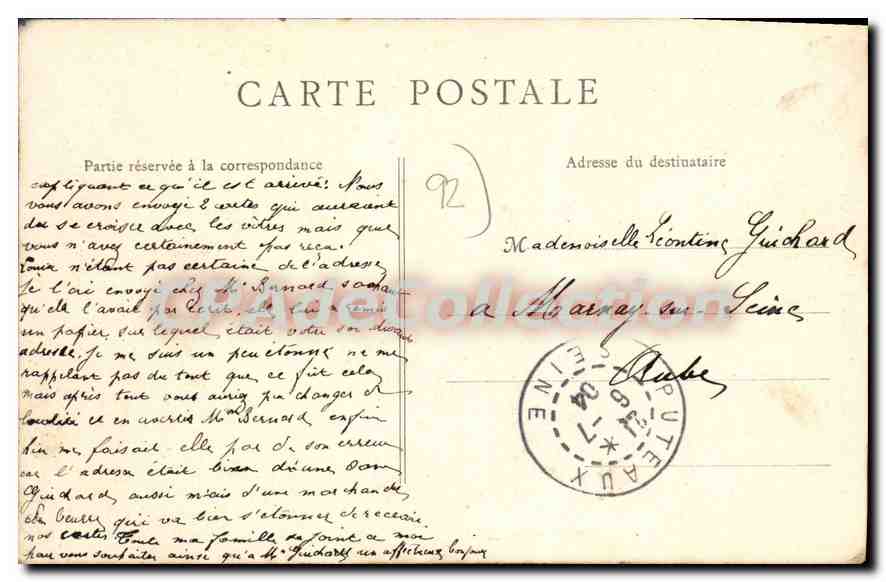 CARTE POSTALE
Partie réservée à la correspondance
Adresse du destinataire
92
expliquant ce qu'il est arrivé. Nous
vous avons envoyé 2 cartes qui auraient
du se croiser avec les vôtres mais que
vous n'avez certainement pas reçu.
n'étant pas certaine de l'adresse
Je l'ai envoyé chez Mme Bernard sachant
qu'elle l'avait par écrit, elle lui a remis
un papier sur lequel était votre soi disant
adresse. Je me suis un peu étonné ne me
rappelant pas du tout que ce fut cela
mais après tout vous auriez pu changer de
et en avertir Mme Bernard enfin
me faisait-elle par de son erreur
car l'adresse était bien d'une Dame
Guichard aussi mais d'une marchande
de beurre qui va bien s'étonner de recevoir
nos cartes. Toute ma famille se joint a moi
pour vous souhaiter ainsi qu'à Me Guichard un affectueux bonjour
Mademoiselle Léontine Guichard
a Marnay-sur-Seine
Aube
PUTEAUX
SEINE
04
CPAdeCollection